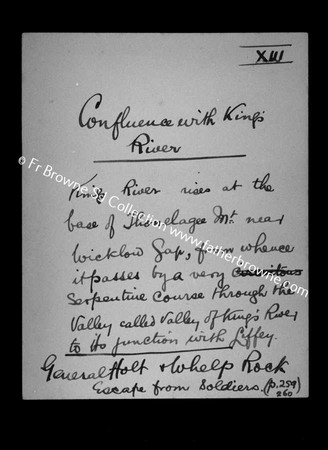 XIII
Confluence with King's
River
King's River rises at the
base of Thonelagee Mt. near
Wicklow Gap, from whence
it passes by a very circuitous
Serpentine Course through the
Valley called Valley of King's River
to its junction with Liffey.
General Holt & Whelp Rock
Escape from Soldiers. (p. 259)
260
© Fr Browne's SJ Collection, www.fatherbrowne.com